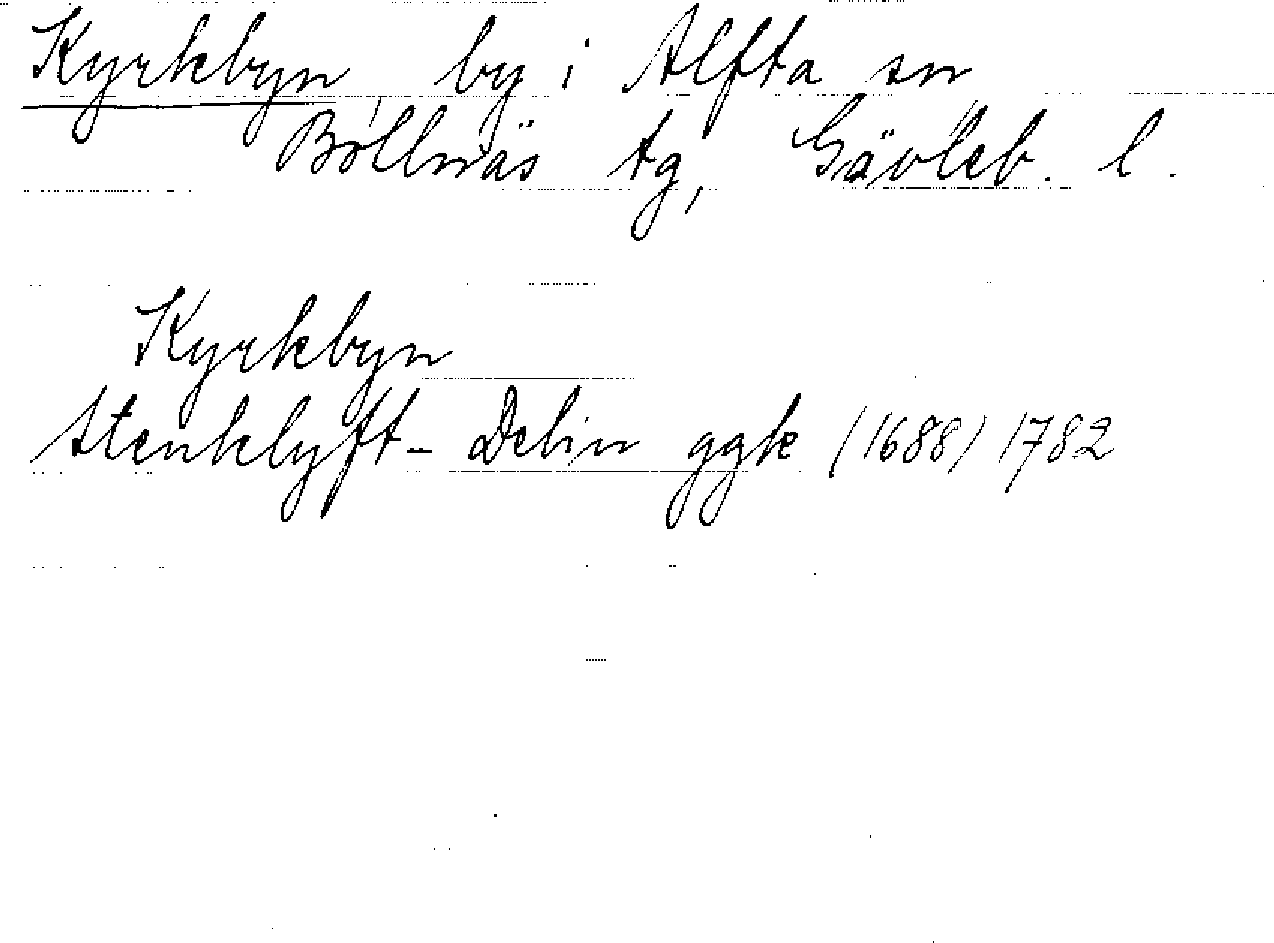 Kyrkbyn, by i Alfta sn
Bollnäs tg, Gävleb. l.
Kyrkbyn
Stenklyft- Delin ggk (1688) 1782